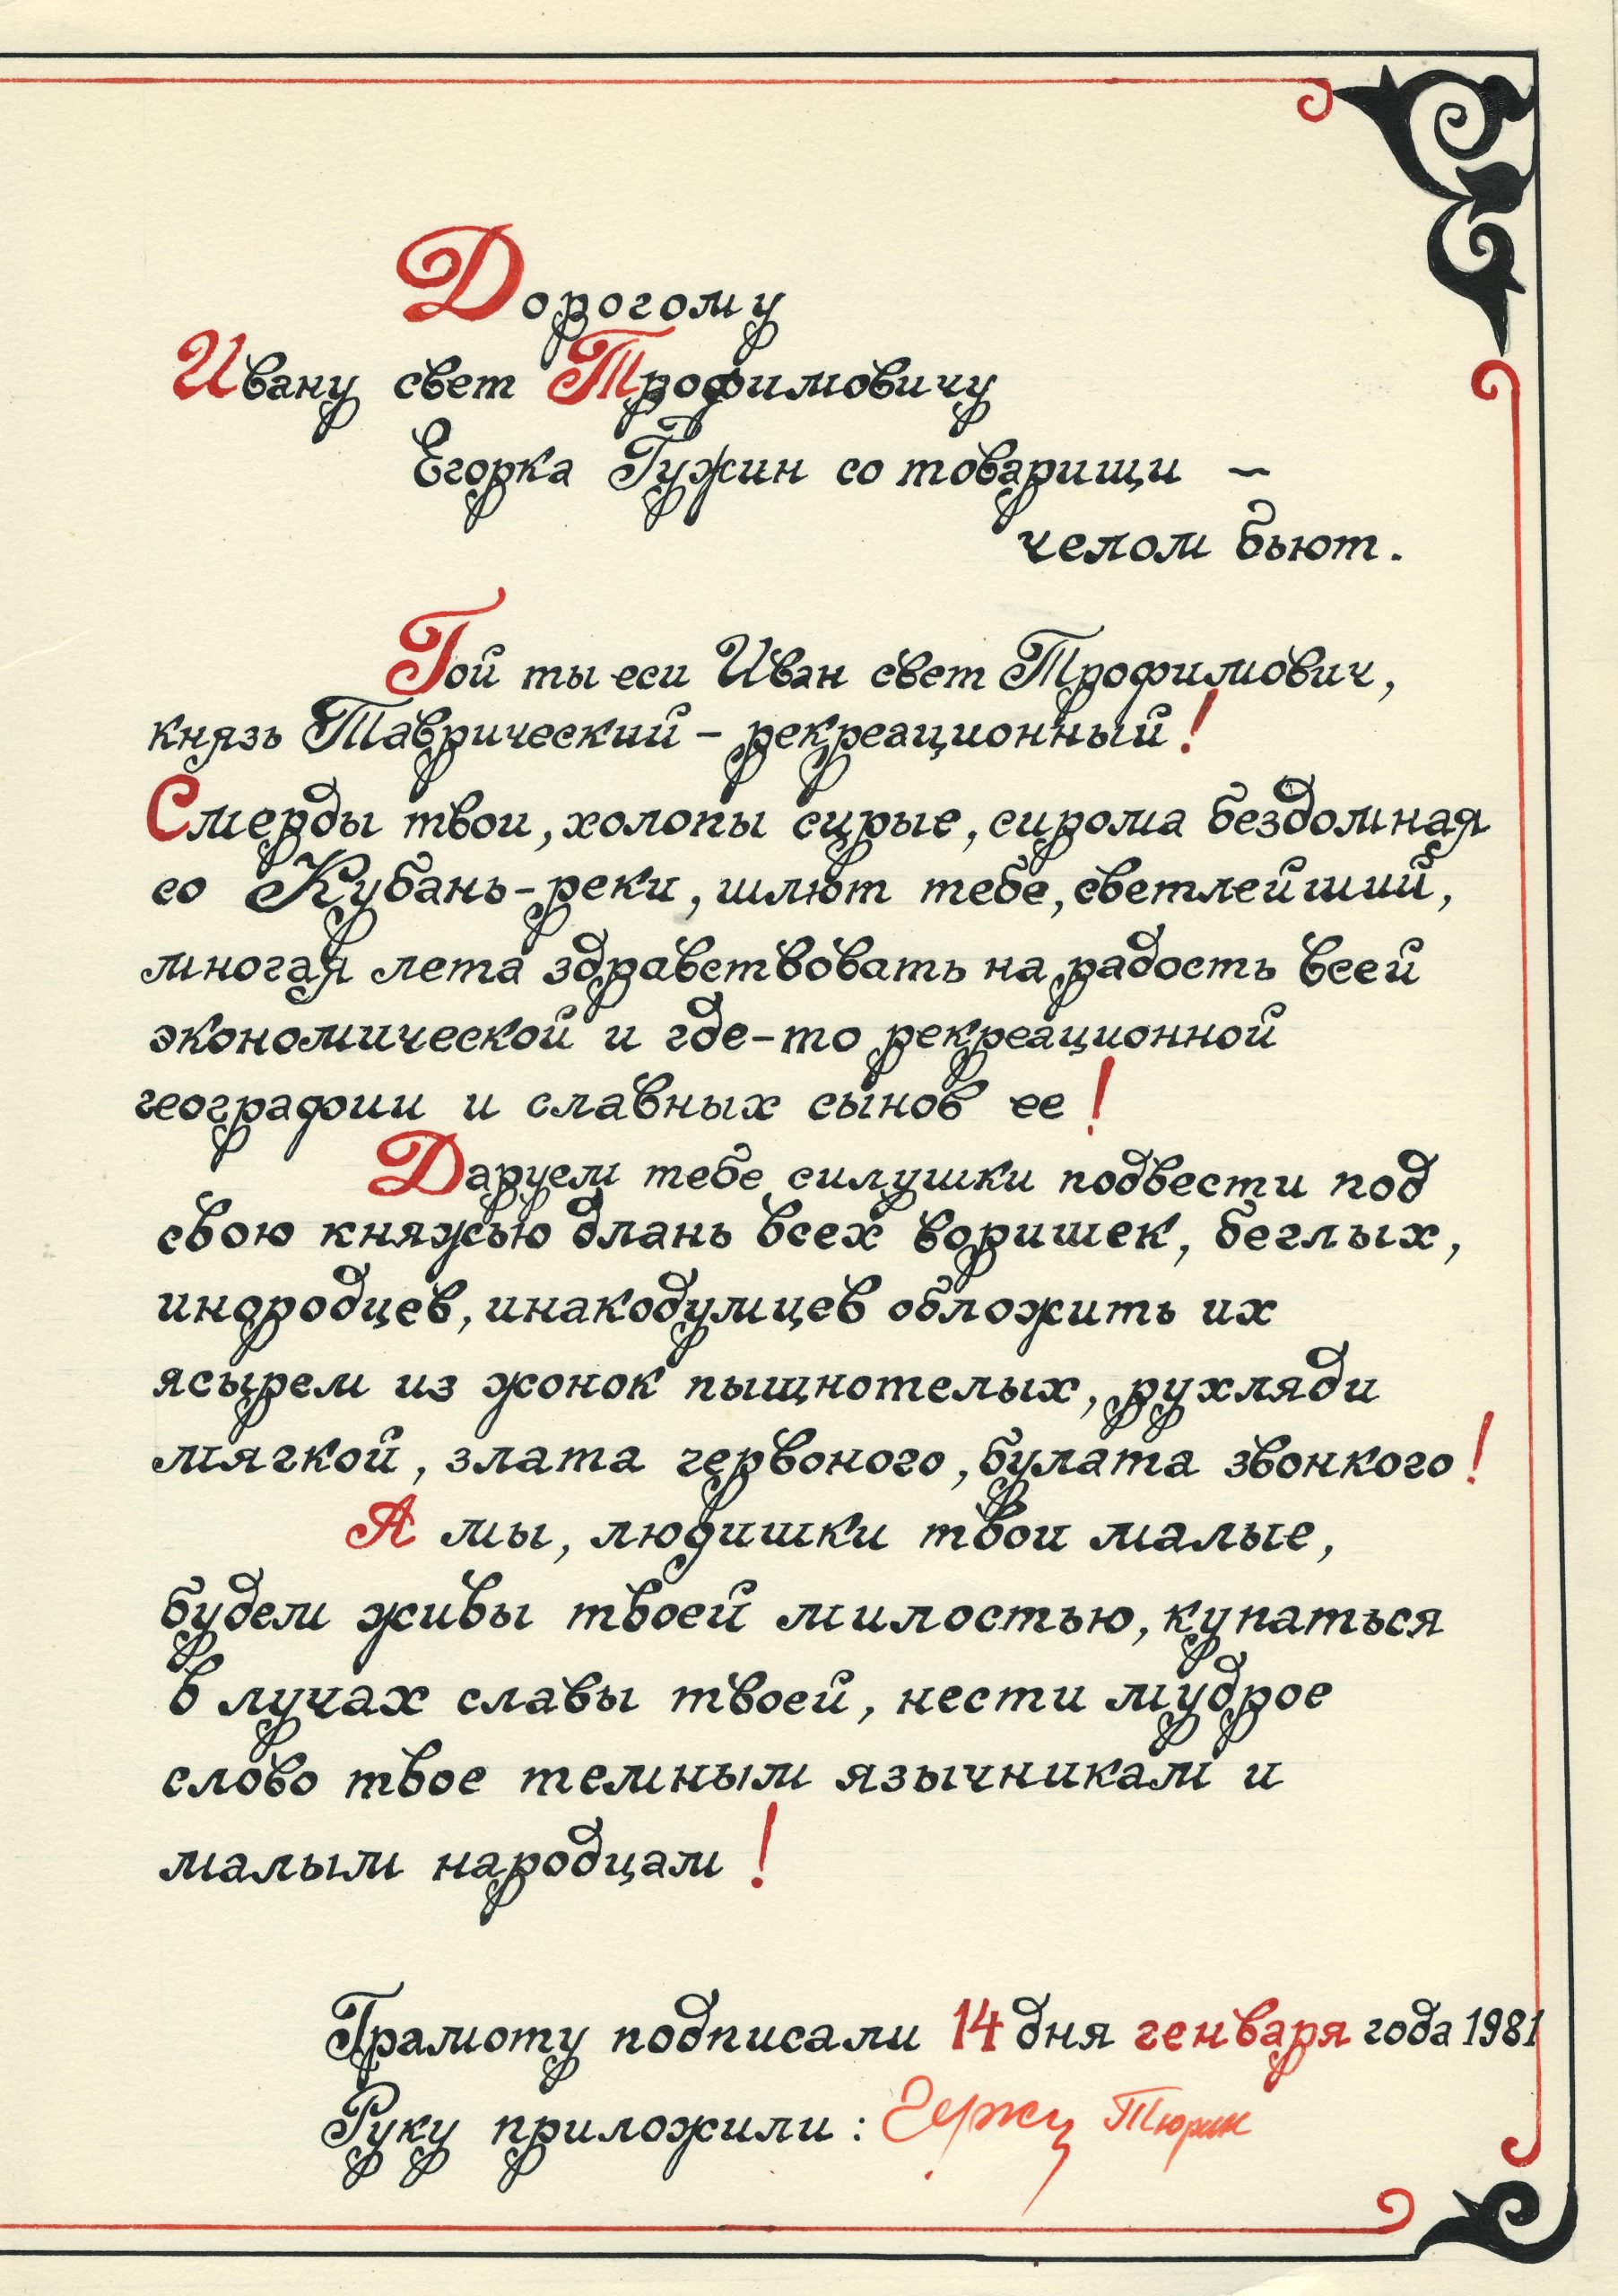 Дорогому
Ивану свет Трофимовичу
Егорка Гужин со товарищи –
челом бьют.
Гой ты еси Иван свет Трофимович,
князь Таврический – рекреационный!
Смерды твои, холопы сирые, сирома бездомная
со Кубань-реки, шлют тебе, светлейший,
многая лета здравствовать на радость всей
экономической и где-то рекреационной
географии и славных сынов ее!
Даруем тебе силушки подвести под
свою княжью длань всех воришек, беглых,
инородцев, инакодумцев обложить их
ясырем из жонок пышнотелых, рухляди
мягкой, злата червоного, булата звонкого!
А мы, людишки твои малые,
будем живы твоей милостью, купаться
в лучах славы твоей, нести мудрое
слово твое темным язычникам и
малым народцам!
Грамоту подписали 14 дня генваря года 1981
Руку приложили: Тюрин